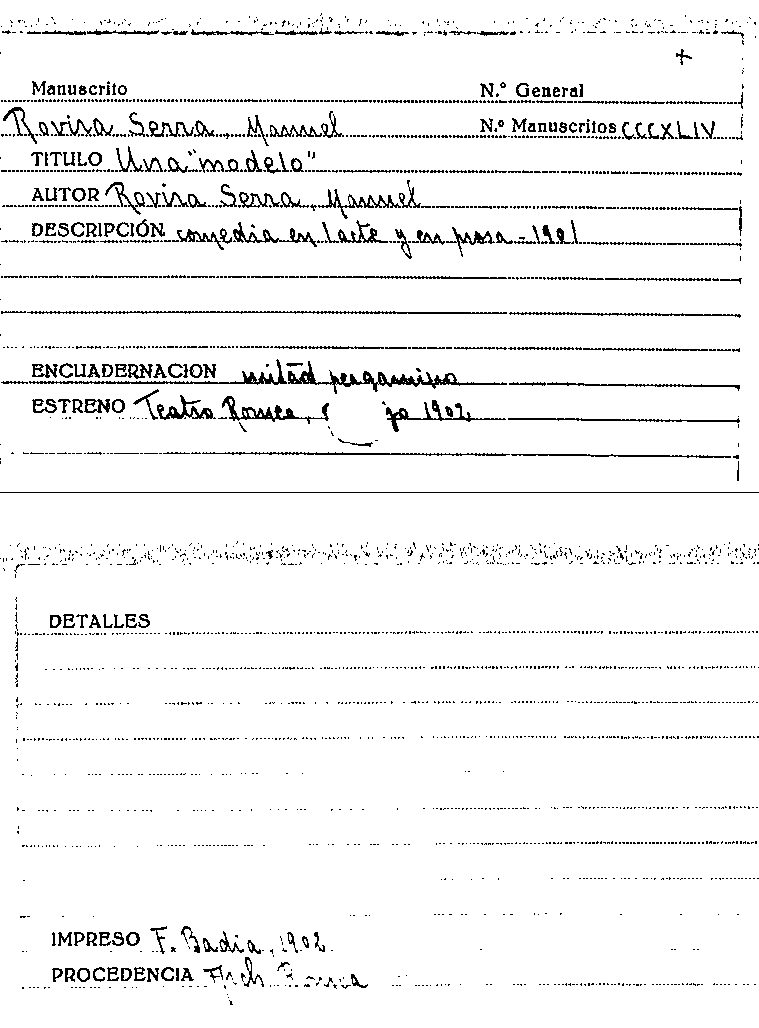 +
Manuscrito N.º General
Rovira Serra, Manuel N.º Manuscritos CCCXLIV
TITULO Una "modelo"
AUTOR Rovira Serra, Manuel
DESCRIPCIÓN comedia en 1 acte y en prosa - 1901
ENCUADERNACION mitad pergamino
ESTRENO Teatro Romea, 1902
DETALLES
IMPRESO F. Badia, 1902
PROCEDENCIA Arch Romea